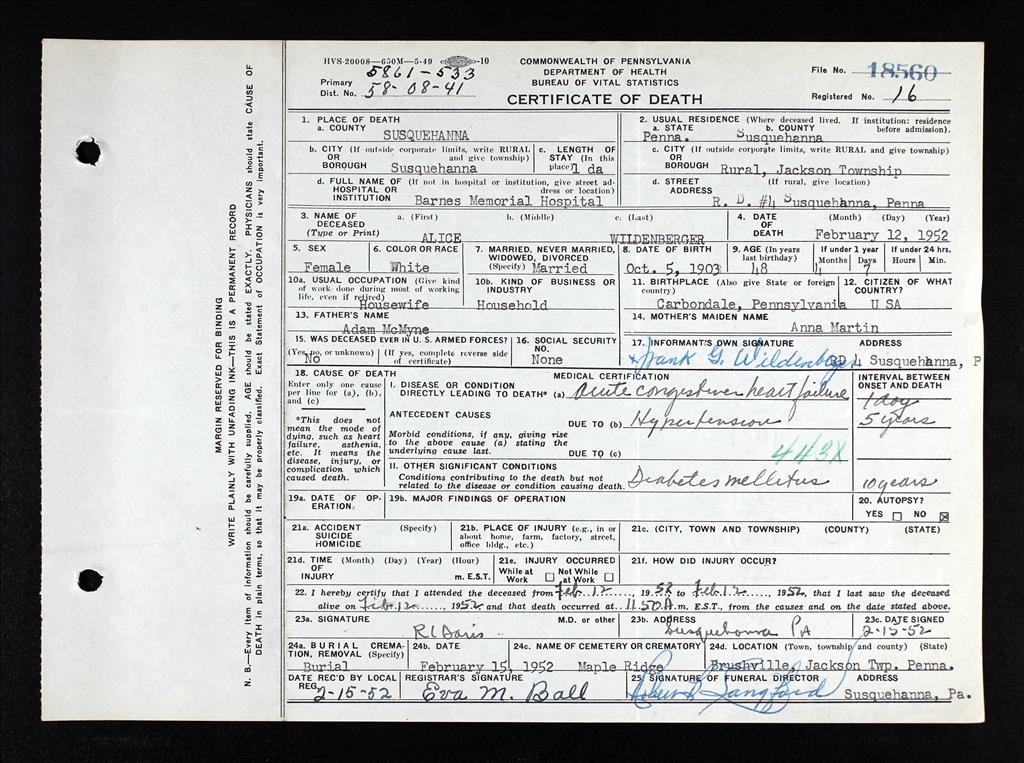 HVS-20008—650M—5-49 -10
5861-533
Primary
Dist. No. 58-08-41
COMMONWEALTH OF PENNSYLVANIA
DEPARTMENT OF HEALTH
BUREAU OF VITAL STATISTICS
CERTIFICATE OF DEATH
File No. 18560
Registered No. 16
MARGIN RESERVED FOR BINDING
WRITE PLAINLY WITH UNFADING INK—THIS IS A PERMANENT RECORD
N. B.—Every item of information should be carefully supplied. AGE should be stated EXACTLY. PHYSICIANS should state CAUSE OF
DEATH in plain terms, so that it may be properly classified. Exact Statement of OCCUPATION is very important.
1. PLACE OF DEATH
a. COUNTY
SUSQUEHANNA
2. USUAL RESIDENCE (Where deceased lived. If institution: residence before admission).
a. STATE b. COUNTY
Penna. Susquehanna
b. CITY (If outside corporate limits, write RURAL
OR and give township)
BOROUGH Susquehanna
c. LENGTH OF
STAY (In this
place) 1 da
c. CITY (If outside corporate limits, write RURAL and give township)
OR
BOROUGH Rural, Jackson Township
d. FULL NAME OF (If not in hospital or institution, give street ad-
HOSPITAL OR dress or location)
INSTITUTION Barnes Memorial Hospital
d. STREET (If rural, give location)
ADDRESS
R. D. #4 Susquehanna, Penna
3. NAME OF DECEASED (Type or Print)
a. (First) b. (Middle) c. (Last)
ALICE WILDENBERGER
4. DATE OF DEATH
(Month) (Day) (Year)
February 12, 1952
5. SEX
Female
6. COLOR OR RACE
White
7. MARRIED, NEVER MARRIED,
WIDOWED, DIVORCED
(Specify) Married
8. DATE OF BIRTH
Oct. 5, 1903
9. AGE (In years
last birthday)
48
If under 1 year If under 24 hrs.
Months Days Hours Min.
4 7
10a. USUAL OCCUPATION (Give kind
of work done during most of working
life, even if retired)
Housewife
10b. KIND OF BUSINESS OR
INDUSTRY
Household
11. BIRTHPLACE (Also give State or foreign
country)
Carbondale, Pennsylvania
12. CITIZEN OF WHAT
COUNTRY?
U SA
13. FATHER'S NAME
Adam McMyne
14. MOTHER'S MAIDEN NAME
Anna Martin
15. WAS DECEASED EVER IN U. S. ARMED FORCES?
(Yes, no, or unknown) (If yes, complete reverse side
No of certificate)
16. SOCIAL SECURITY
NO.
None
17. INFORMANT'S OWN SIGNATURE ADDRESS
x Frank G. Wildenberger RD 4 Susquehanna, P
18. CAUSE OF DEATH
Enter only one cause
per line for (a), (b),
and (c)
*This does not
mean the mode of
dying, such as heart
failure, asthenia,
etc. It means the
disease, injury, or
complication which
caused death.
MEDICAL CERTIFICATION
INTERVAL BETWEEN
ONSET AND DEATH
I. DISEASE OR CONDITION
DIRECTLY LEADING TO DEATH* (a) Acute congestive heart failure 1 day
ANTECEDENT CAUSES
DUE TO (b) Hypertension 5 years
Morbid conditions, if any, giving rise
to the above cause (a) stating the
underlying cause last.
DUE TO (c)
443X
II. OTHER SIGNIFICANT CONDITIONS
Conditions contributing to the death but not
related to the disease or condition causing death. Diabetes mellitus 10 years
19a. DATE OF OP-
ERATION
19b. MAJOR FINDINGS OF OPERATION
20. AUTOPSY?
YES ☐ NO ☒
21a. ACCIDENT (Specify)
SUICIDE
HOMICIDE
21b. PLACE OF INJURY (e.g., in or
about home, farm, factory, street,
office bldg., etc.)
21c. (CITY, TOWN AND TOWNSHIP) (COUNTY) (STATE)
21d. TIME (Month) (Day) (Year) (Hour)
OF
INJURY m. E.S.T.
21e. INJURY OCCURRED
While at Work ☐ Not While at Work ☐
21f. HOW DID INJURY OCCUR?
22. I hereby certify that I attended the deceased from Feb. 12, 1952, to Feb. 12, 1952, that I last saw the deceased
alive on Feb. 12, 1952 and that death occurred at 11.50 A.m. E.S.T., from the causes and on the date stated above.
23a. SIGNATURE M.D. or other
R L Davis
23b. ADDRESS
Susquehanna PA
23c. DATE SIGNED
2-15-52
24a. BURIAL CREMA-
TION, REMOVAL (Specify)
Burial
24b. DATE
February 15, 1952
24c. NAME OF CEMETERY OR CREMATORY
Maple Ridge
24d. LOCATION (Town, township and county) (State)
Brushville, Jackson Twp. Penna.
DATE REC'D BY LOCAL
REG. 2-15-52
REGISTRAR'S SIGNATURE
Eva M. Ball
25. SIGNATURE OF FUNERAL DIRECTOR ADDRESS
Langford Susquehanna, Pa.